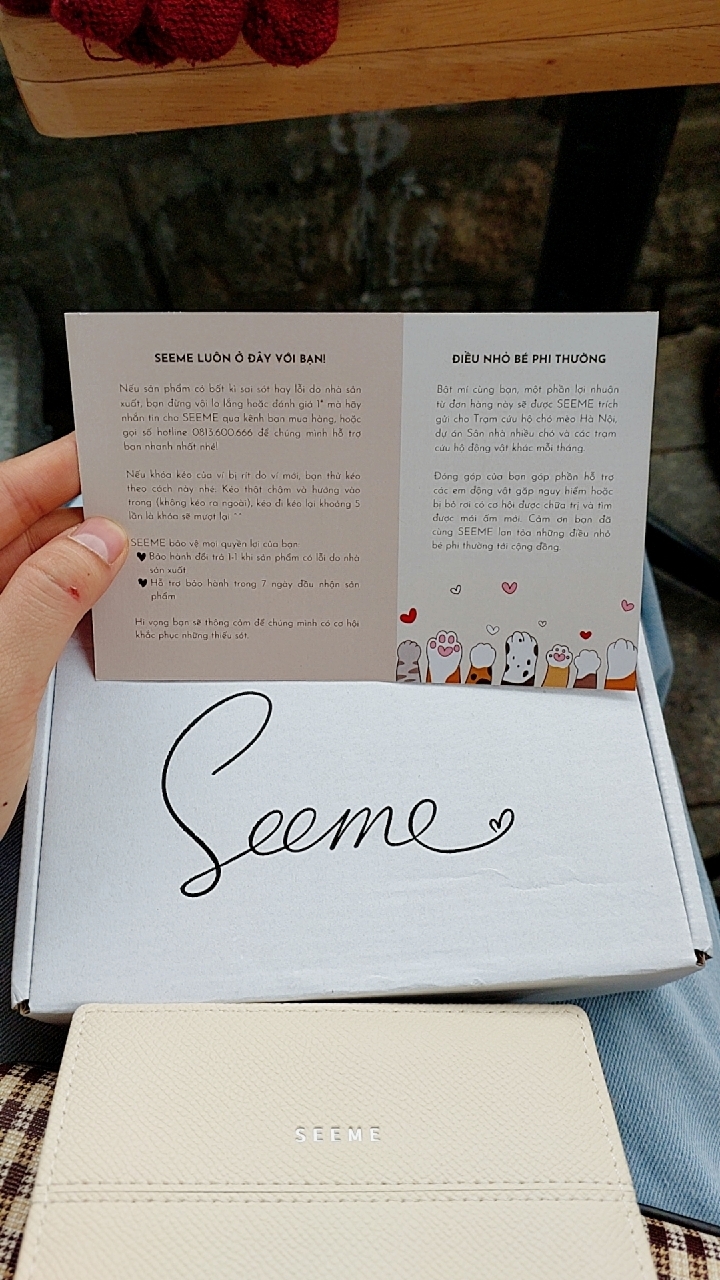 SEEME LUÔN Ở ĐÂY VỚI BẠN!
Nếu sản phẩm có bất kì sai sót hay lỗi do nhà sản
xuất, bạn đừng vội lo lắng hoặc đánh giá 1* mà hãy
nhắn tin cho SEEME qua kênh bạn mua hàng, hoặc
gọi số hotline 0813.600.666 để chúng mình hỗ trợ
bạn nhanh nhất nhé!
Nếu khóa kéo của ví bị rít do ví mới, bạn thử kéo
theo cách này nhé: Kéo thật chậm và hướng vào
trong (không kéo ra ngoài), kéo đi kéo lại khoảng 5
lần là khóa sẽ mượt lại ^^
SEEME bảo vệ mọi quyền lợi của bạn:
Bảo hành đổi trả 1-1 khi sản phẩm có lỗi do nhà
sản xuất
Hỗ trợ bảo hành trong 7 ngày đầu nhận sản
phẩm
Hi vọng bạn sẽ thông cảm để chúng mình có cơ hội
khắc phục những thiếu sót.
ĐIỀU NHỎ BÉ PHI THƯỜNG
Bật mí cùng bạn, một phần lợi nhuận
từ đơn hàng này sẽ được SEEME trích
gửi cho Trạm cứu hộ chó mèo Hà Nội,
dự án Sân nhà nhiều chó và các trạm
cứu hộ động vật khác mỗi tháng.
Đóng góp của bạn góp phần hỗ trợ
các em động vật gặp nguy hiểm hoặc
bị bỏ rơi có cơ hội được chữa trị và tìm
được mái ấm mới. Cảm ơn bạn đã
cùng SEEME lan tỏa những điều nhỏ
bé phi thường tới cộng đồng.
Seeme
SEEME